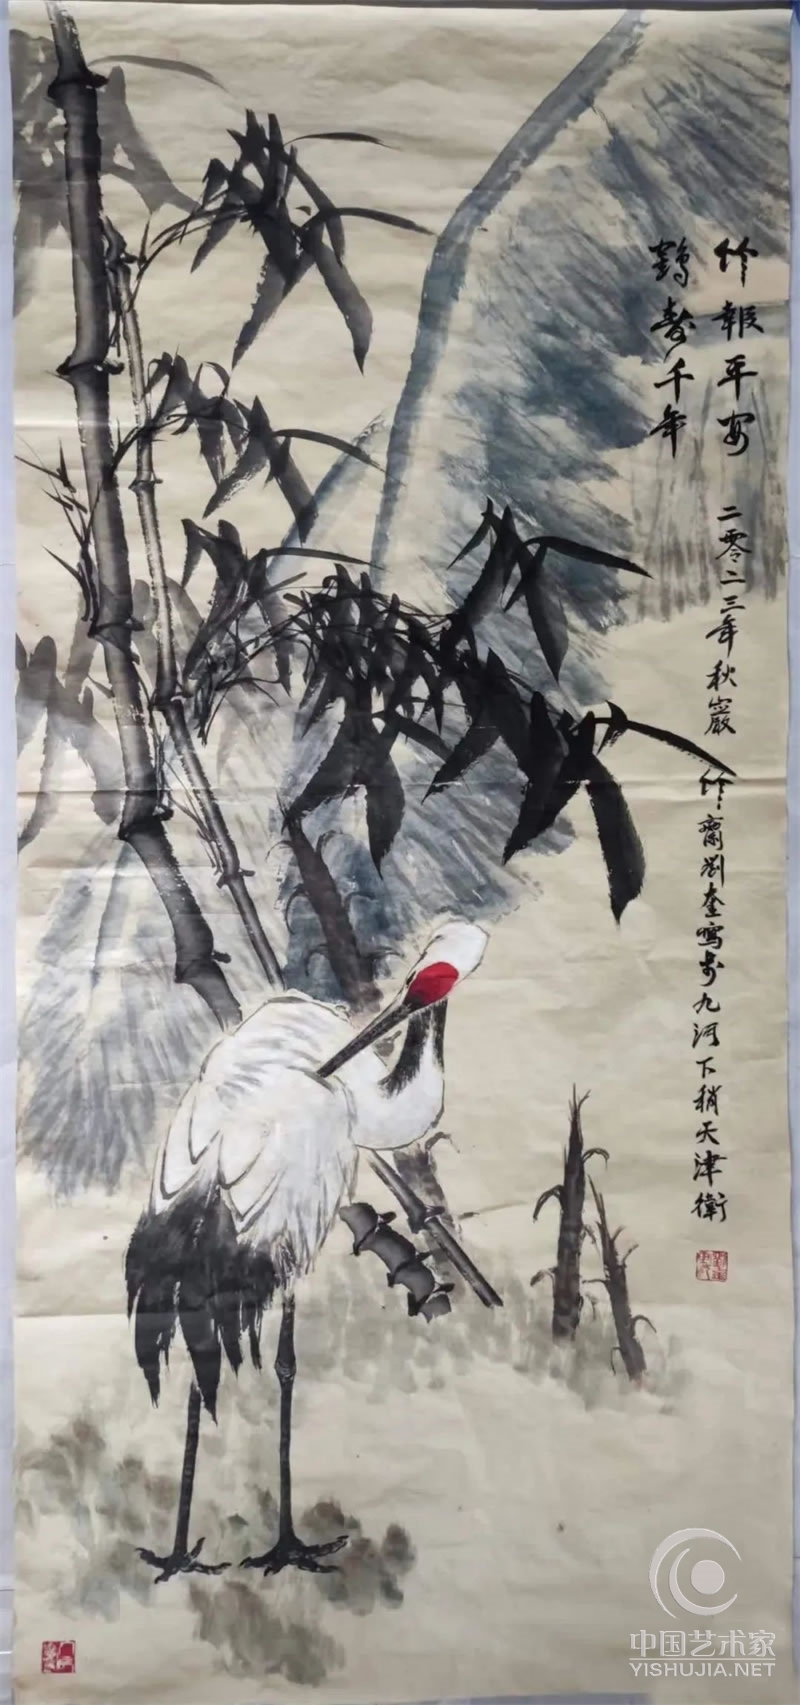 竹報平安
鶴壽千年
二零二三年秋巖
竹齋劉奎寫於九河下稍天津衛
中国艺术家
YISHUJIA.NET